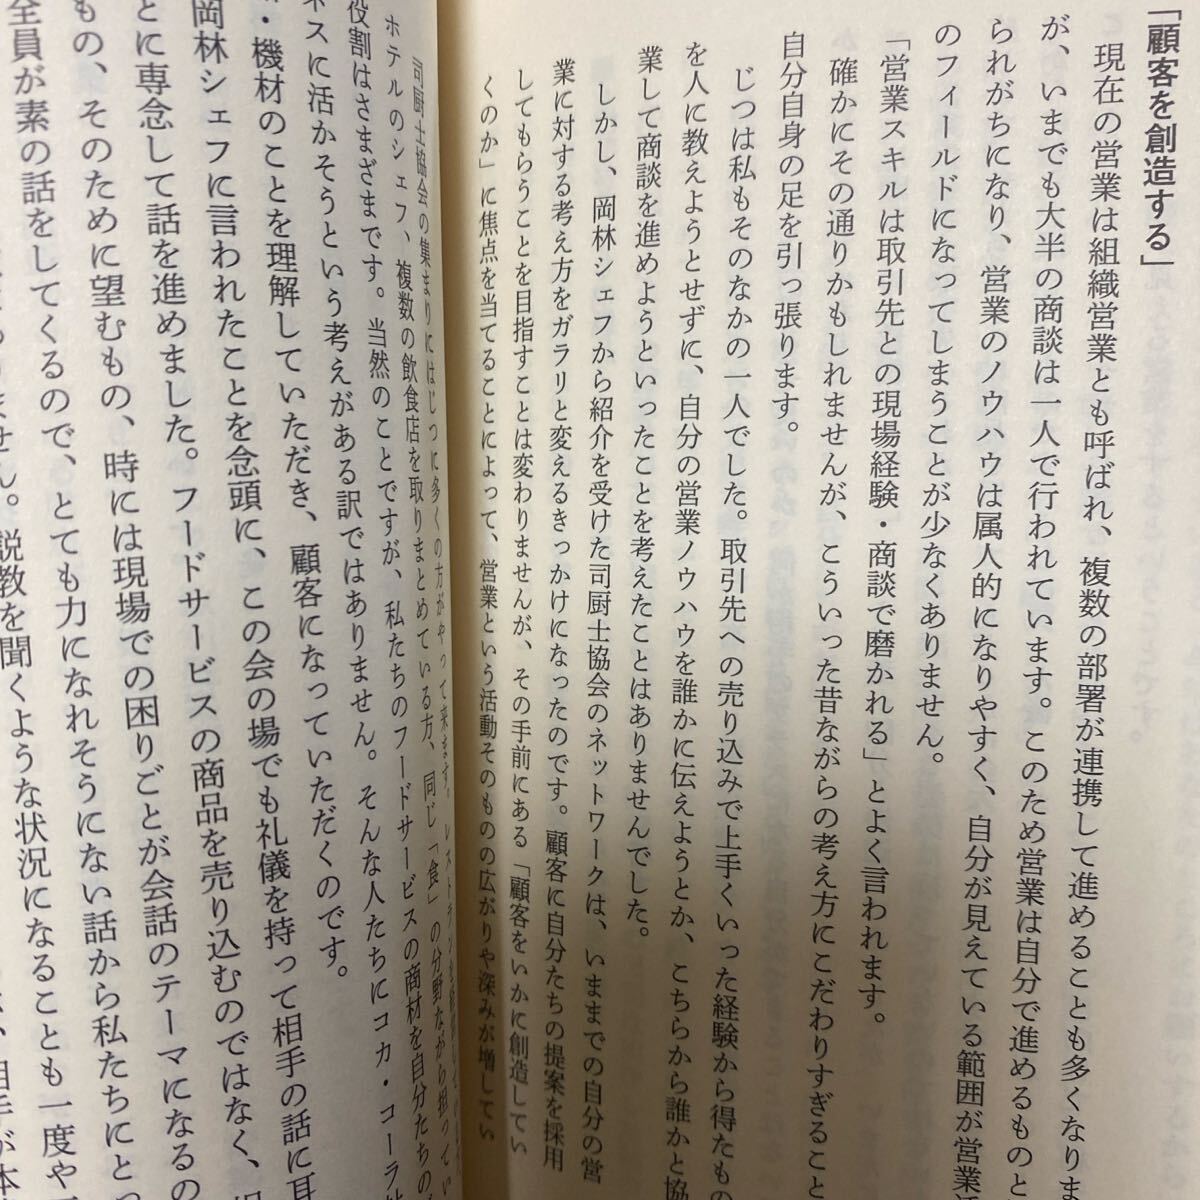 「顧客を創造する」
現在の営業は組織営業とも呼ばれ、複数の部署が連携して進めることも多くなりま
が、いまでも大半の商談は一人で行われています。このため営業は自分で進めるものと
られがちになり、営業のノウハウは属人的になりやすく、自分が見えている範囲が営業活
のフィールドになってしまうことが少なくありません。
「営業スキルは取引先との現場経験・商談で磨かれる」とよく言われます。
確かにその通りかもしれませんが、こういった昔ながらの考え方にこだわりすぎること
自分自身の足を引っ張ります。
じつは私もそのなかの一人でした。取引先への売り込みで上手くいった経験から得たもの
を人に教えようとせずに、自分の営業ノウハウを誰かに伝えようとか、こちらから誰かと協
業して商談を進めようといったことを考えたことはありませんでした。
しかし、岡林シェフから紹介を受けた司厨士協会のネットワークは、いままでの自分の営
業に対する考え方をガラリと変えるきっかけになったのです。顧客に自分たちの提案を採用
してもらうことを目指すことは変わりませんが、その手前にある「顧客をいかに創造してい
くのか」に焦点を当てることによって、営業という活動そのものの広がりや深みが増してい
司厨士協会の集まりにはじつに多くの方がやって来ます。レストランを経営して
ホテルのシェフ、複数の飲食店を取りまとめている方、同じ「食」の分野ながら担ってい
役割はさまざまです。当然のことですが、私たちのフードサービスの商材を自分たちの
ネスに活かそうという考えがある訳ではありません。そんな人たちにコカ・コーラ社
・機材のことを理解していただき、顧客になっていただくのです。
岡林シェフに言われたことを念頭に、この会の場でも礼儀を持って相手の話に耳
とに専念して話を進めました。フードサービスの商品を売り込むのではなく、
もの、そのために望むもの、時には現場での困りごとが会話のテーマになるの
全員が素の話をしてくるので、とても力になれそうにない話から私たちにと
ません。説教を聞くような状況になることも一度や